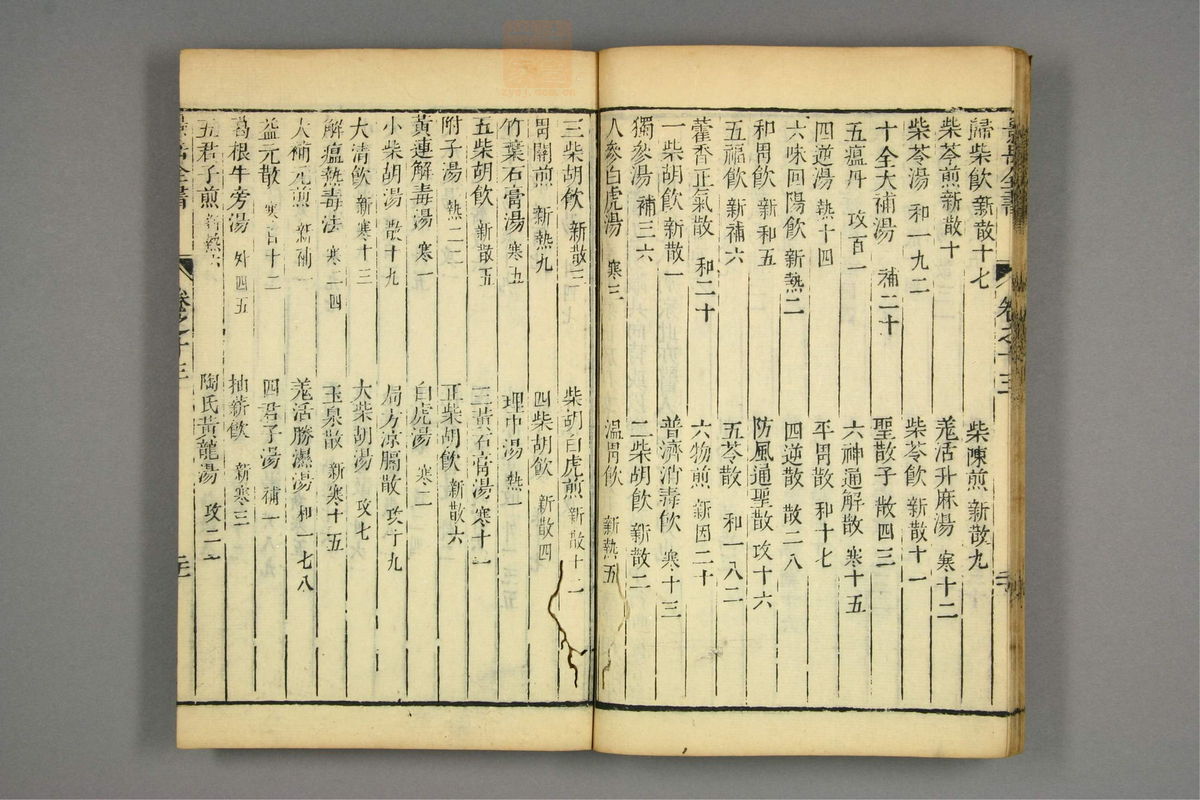 景岳全書 卷之十三
歸柴飲 新散十七 柴陳煎 新散九
柴芩煎 新散十 羗活升麻湯 寒十二
柴苓湯 和一九二 柴苓飲 新散十一
十全大補湯 補二十 聖散子 散四三
五瘟丹 攻百一 六神通解散 寒十五
四逆湯 熱十四 平胃散 和十七
六味回陽飲 新熱二 四逆散 散二八
和胃飲 新和五 防風通聖散 攻十六
五福飲 新補六 五苓散 和一八二
藿香正氣散 和二十 六物煎 新因二十
一柴胡飲 新散一 普濟消毒飲 寒十三
獨參湯 補三六 二柴胡飲 新散二
人參白虎湯 寒三 溫胃飲 新熱五
三柴胡飲 新散三 柴胡白虎煎 新散十二
胃關煎 新熱九 四柴胡飲 新散四
竹葉石膏湯 寒五 理中湯 熱一
五柴胡飲 新散五 三黃石膏湯 寒十一
附子湯 熱二二 正柴胡飲 新散六
黃連解毒湯 寒一 白虎湯 寒二
小柴胡湯 散十九 局方涼膈散 攻十九
大清飲 新寒十三 大柴胡湯 攻七
解瘟熱毒法 寒二四 玉泉散 新寒十五
大補元煎 新補一 羗活勝濕湯 和一七八
益元散 寒百十二 四君子湯 補一
葛根牛旁湯 外四五 抽薪飲 新寒三
五君子煎 新熱六 陶氏黃龍湯 攻二一
景岳全書 卷之十三